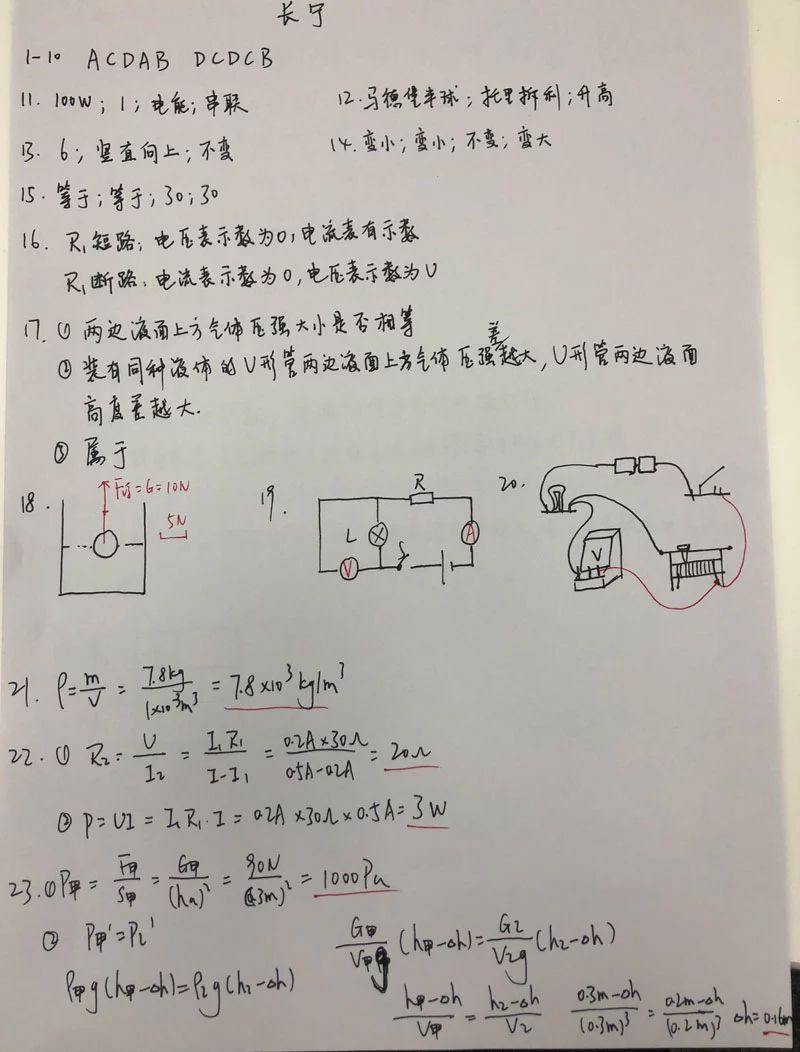 长宁
1-10 ACDAB DCDCB
11. 100W; 1; 电能; 串联
12. 马德堡半球; 托里拆利; 升高
13. 6; 竖直向上; 不变
14. 变小; 变小; 不变; 变大
15. 等于; 等于; 30; 30
16. R₁短路: 电压表示数为0, 电流表有示数
R₁断路: 电流表示数为0, 电压表示数为U
17. ① 两边液面上方气体压强大小是否相等
② 装有同种液体的U形管两边液面上方气体压强差越大, U形管两边液面
高度差越大.
③ 属于
18. F浮=G=10N
5N
19. R
L A
V
20. V
21. ρ=m/V = 7.8kg/1×10⁻³m³ = 7.8×10³kg/m³
22. ① R₂= U/I₂ = I₁R₁/I-I₁ = 0.2A×30Ω/0.5A-0.2A = 20Ω
② P=UI = I₁R₁·I = 0.2A×30Ω×0.5A= 3W
23. ① P甲 = F甲/S甲 = G甲/(h甲)² = 90N/(0.3m)² = 1000Pa
② P甲'=P乙'
ρ甲g(h甲-Δh)=ρ乙g(h乙-Δh)
G甲/V甲g (h甲-Δh)= G乙/V乙g (h乙-Δh)
h甲-Δh/V甲 = h乙-Δh/V乙 0.3m-Δh/(0.3m)³ = 0.2m-Δh/(0.2m)³ Δh=0.16m